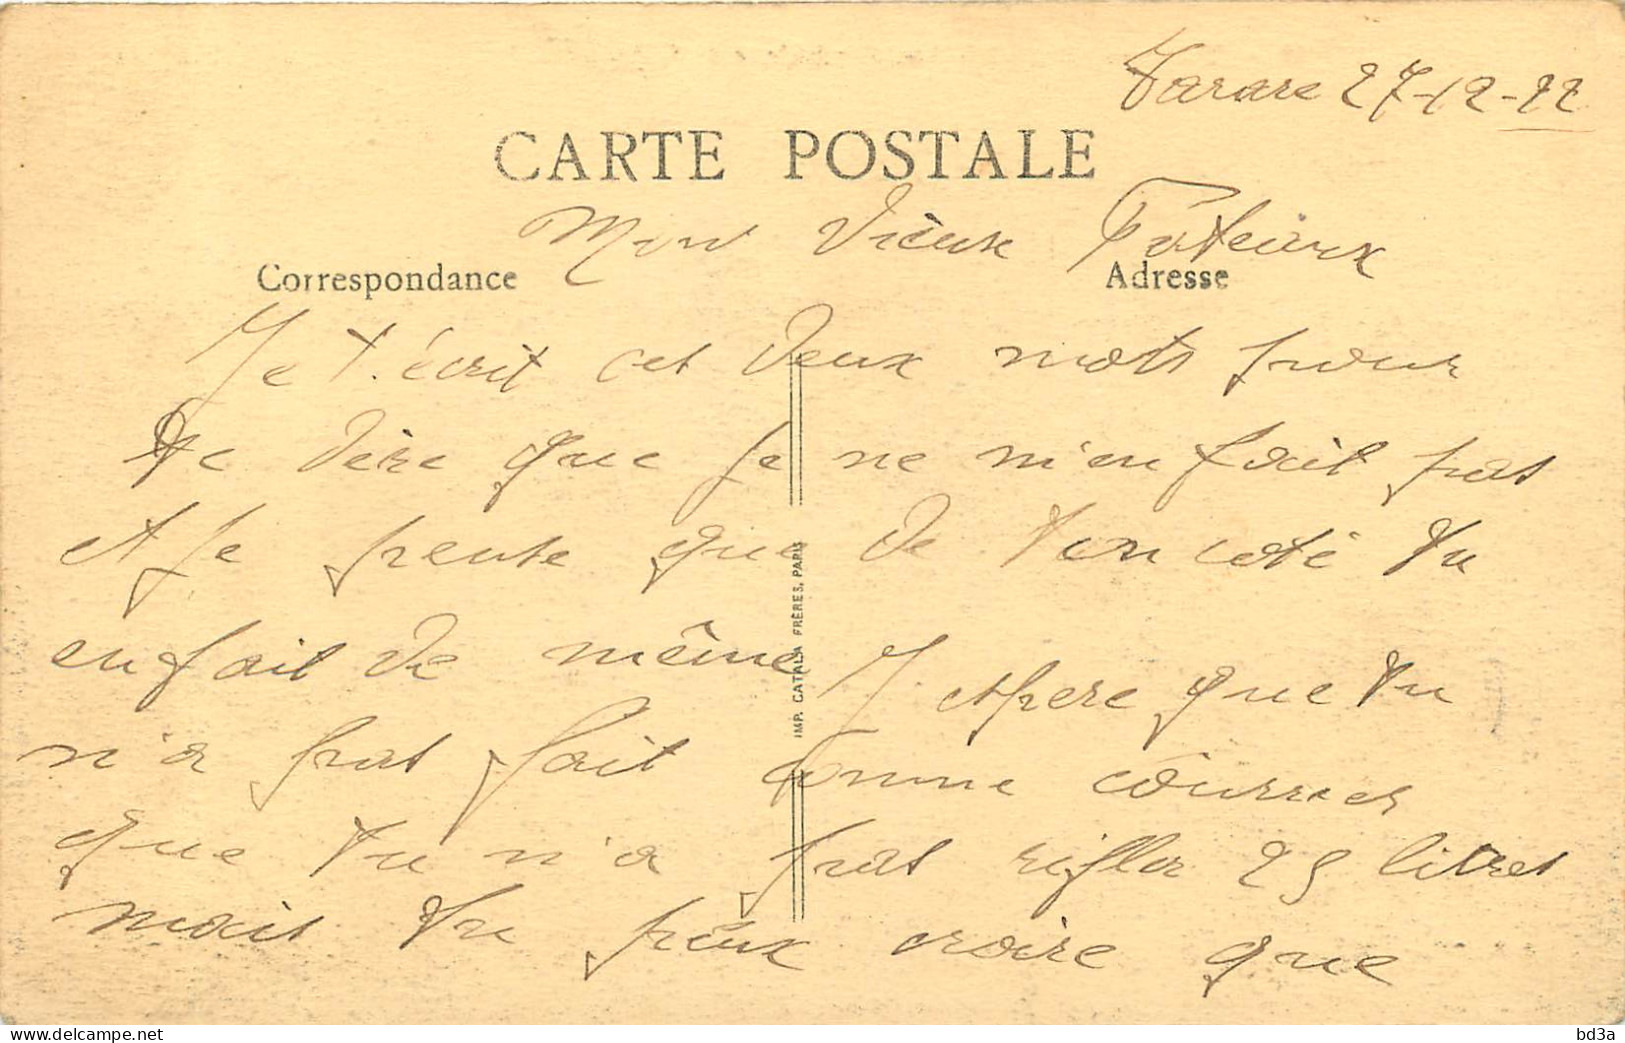 Tarare 27-12-22
CARTE POSTALE
Mon Vieux
Correspondance
Adresse
Je t'écrit cet deux mots pour
te dire que je ne m'en fait pas
et je pense que de ton coté tu
en fait de même J'espere que tu
n'a pas fait comme courrier
que tu n'a pas rifler 25 litres
mais tu peux croire que
IMP. CATALA FRÈRES, PARIS
bd3a